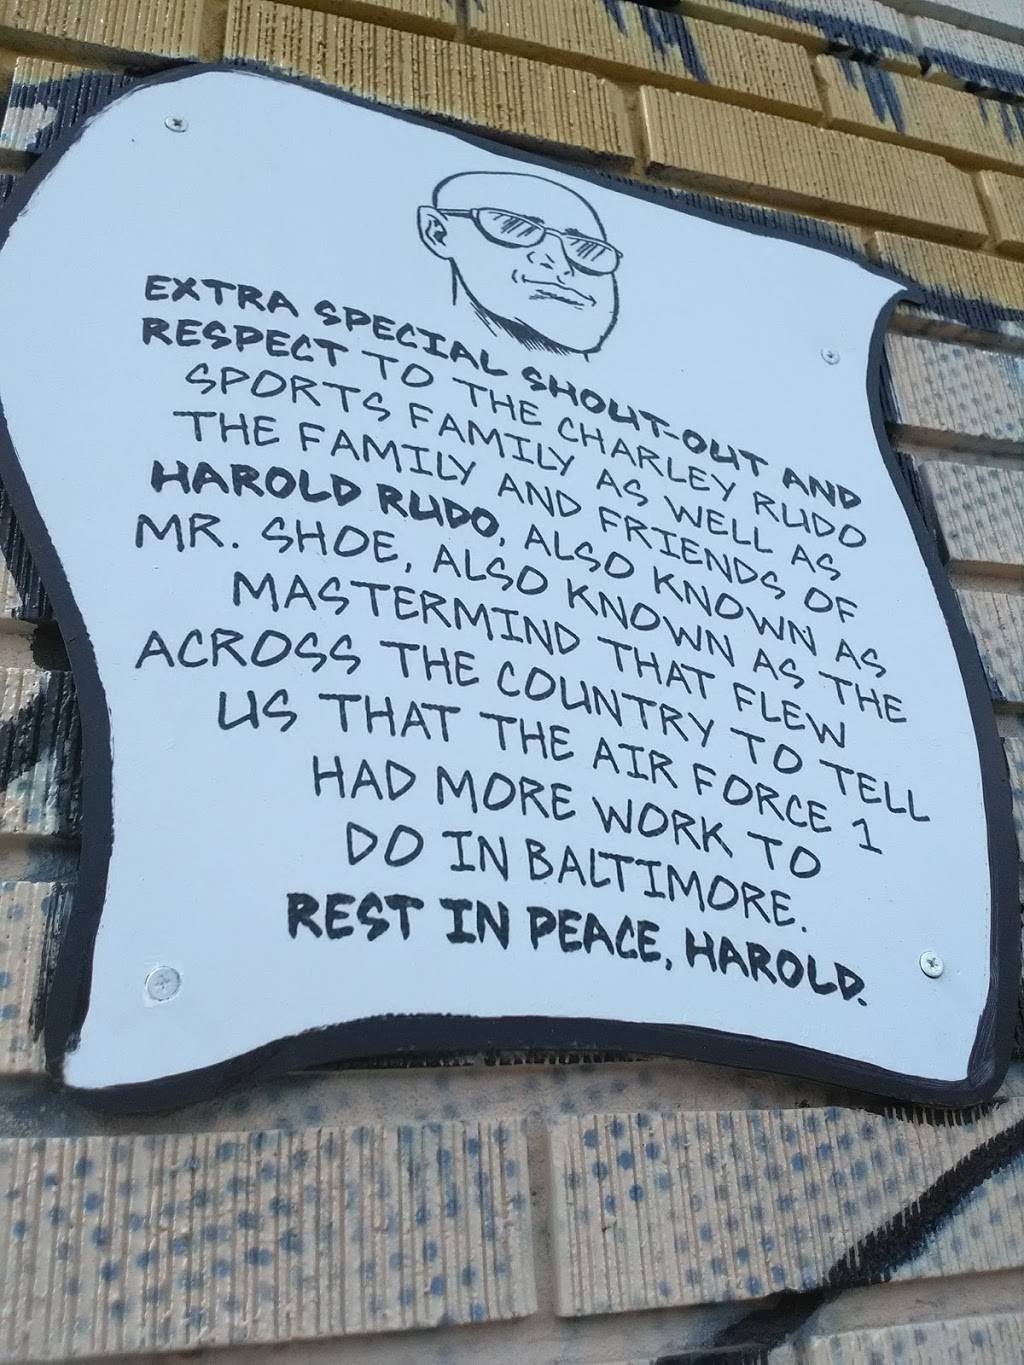 EXTRA SPECIAL SHOUT-OUT AND
RESPECT TO THE CHARLEY RUDO
SPORTS FAMILY AS WELL AS
THE FAMILY AND FRIENDS OF
HAROLD RUDO, ALSO KNOWN AS
MR. SHOE, ALSO KNOWN AS THE
MASTERMIND THAT FLEW
ACROSS THE COUNTRY TO TELL
US THAT THE AIR FORCE 1
HAD MORE WORK TO
DO IN BALTIMORE.
REST IN PEACE, HAROLD.